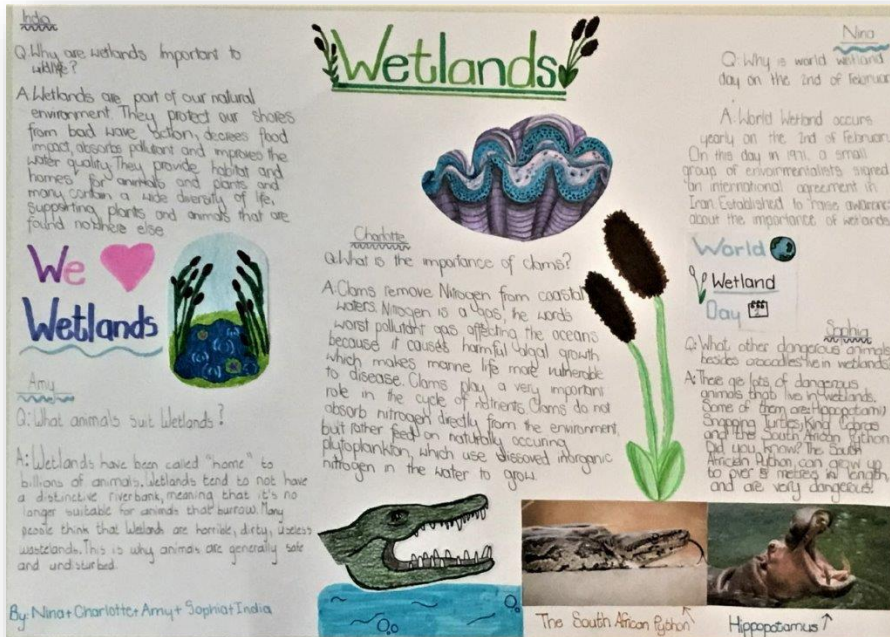 Wetlands
India
Q: Why are wetlands important to
wildlife?
A: Wetlands are part of our natural
environment. They protect our shores
from bad wave action, decrees flood
impact, absorbs pollutant and improves the
water quality. They provide habitat and
homes for animals and plants and
many contain a wide diversity of life,
supporting plants and animals that are
found nowhere else
We
Wetlands
Amy
Q: What animals suit Wetlands?
A: Wetlands have been called "home" to
billions of animals. Wetlands tend to not have
a distinctive riverbank, meaning that it's no
longer suitable for animals that burrow. Many
people think that Wetlands are horrible, dirty, useless
wastelands. This is why animals are generally safe
and undisturbed.
By: Nina + Charlotte + Amy + Sophia + India
Charlotte
Q: What is the importance of clams?
A: Clams remove Nitrogen from coastal
waters. Nitrogen is a gas, the words
worst pollutant gas affecting the oceans
because it causes harmful algal growth
which makes marine life more vulnerable
to disease. Clams play a very important
role in the cycle of nutrients. Clams do not
absorb nitrogen directly from the environment,
but rather feed on naturally occuring
phytoplankton, which use dissoved inorganic
nitrogen in the water to grow.
Nina
Q: Why is world wetland
day on the 2nd of February
A: World Wetland occurs
yearly on the 2nd of February
On this day in 1971, a small
group of enviormentalists signed
an international agreement in
Iran. Established to raise awarene
about the importance of wetlands
World
Wetland
Day
Sophia
Q: What other dangerous animals
besides crocodiles live in wetlands
A: There are lots of dangerous
animals that live in wetlands.
Some of them are: Hippopotami,
Snapping Turtles, King Cobras
and the South African Python
Did you know? The South
African Python, can grow up
to over 5 metres in length,
and are very dangerous!
The South African Python
Hippopotamus